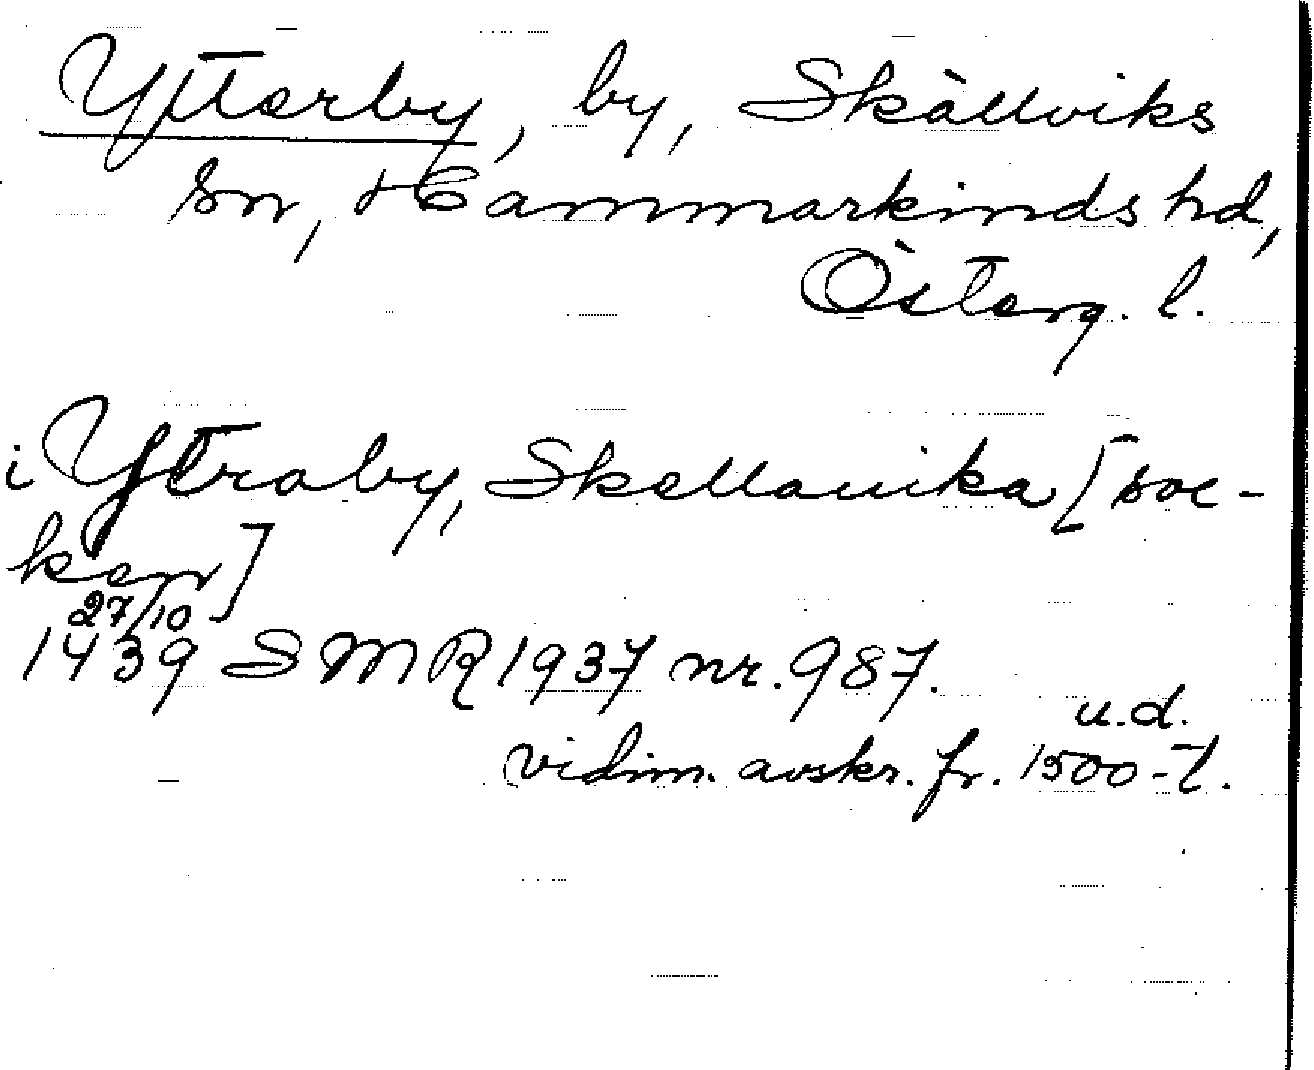 Ytterby, by, Skällviks
sn, Hammarkinds hd,
Österg. l.
i Ytraby, Skællauika [soc-
ken]
27/10
1439 SMR 1937 nr. 987.
u.d.
vidim. avskr. fr. 1500-t.